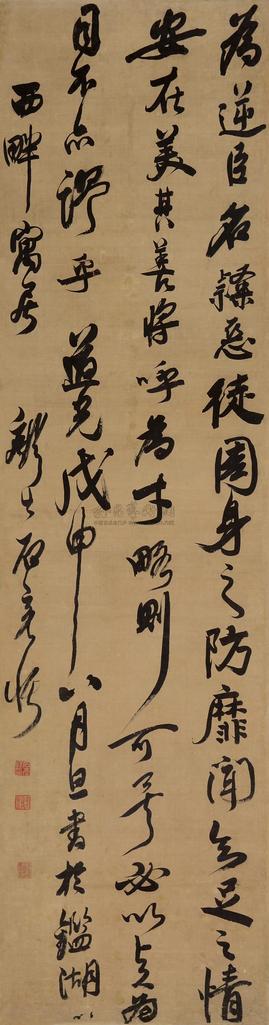 為逆臣名隸惡徒圖身之防靡聞知足之情
安在美其善將呼為才略則可矣必以良為
目不亦謬乎 道光戊申八月旦書於鑑湖
西畔寓居